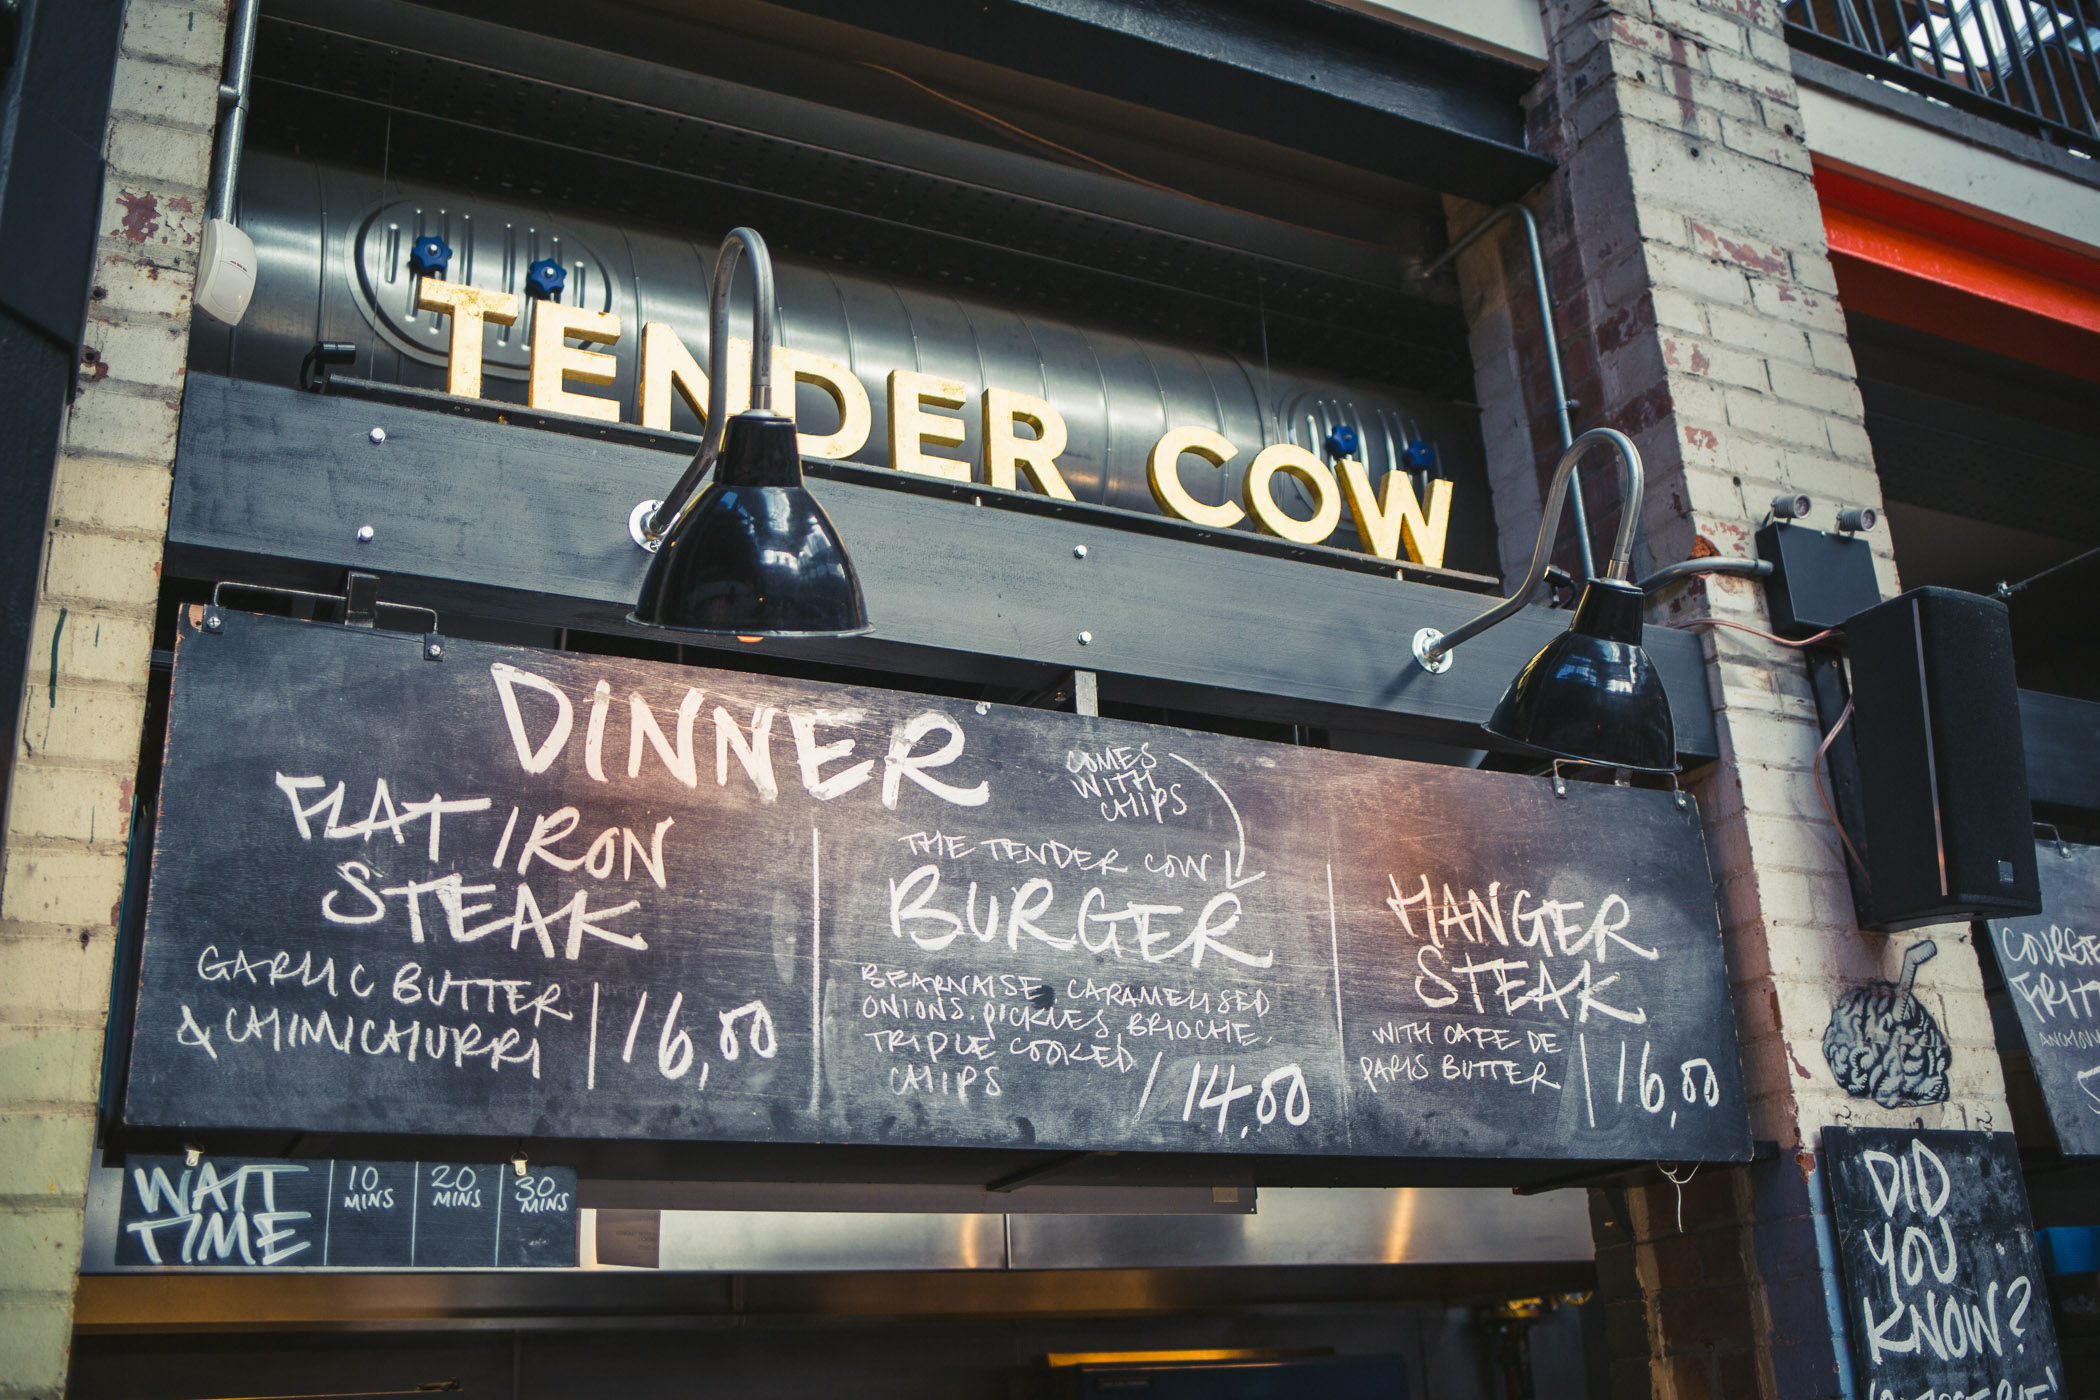 TENDER COW
DINNER
FLAT IRON
STEAK
GARLIC BUTTER
& CHIMICHURRI
16,00
COMES
WITH
CHIPS
THE TENDER COW
BURGER
BEARNAISE, CARAMELISED
ONIONS, PICKLES, BRIOCHE,
TRIPLE COOKED
CHIPS
14,00
HANGER
STEAK
WITH CAFE DE
PARIS BUTTER
16,00
WAIT
TIME
10
MINS
20
MINS
30
MINS
DID
YOU
KNOW?
COURGE
FRIT